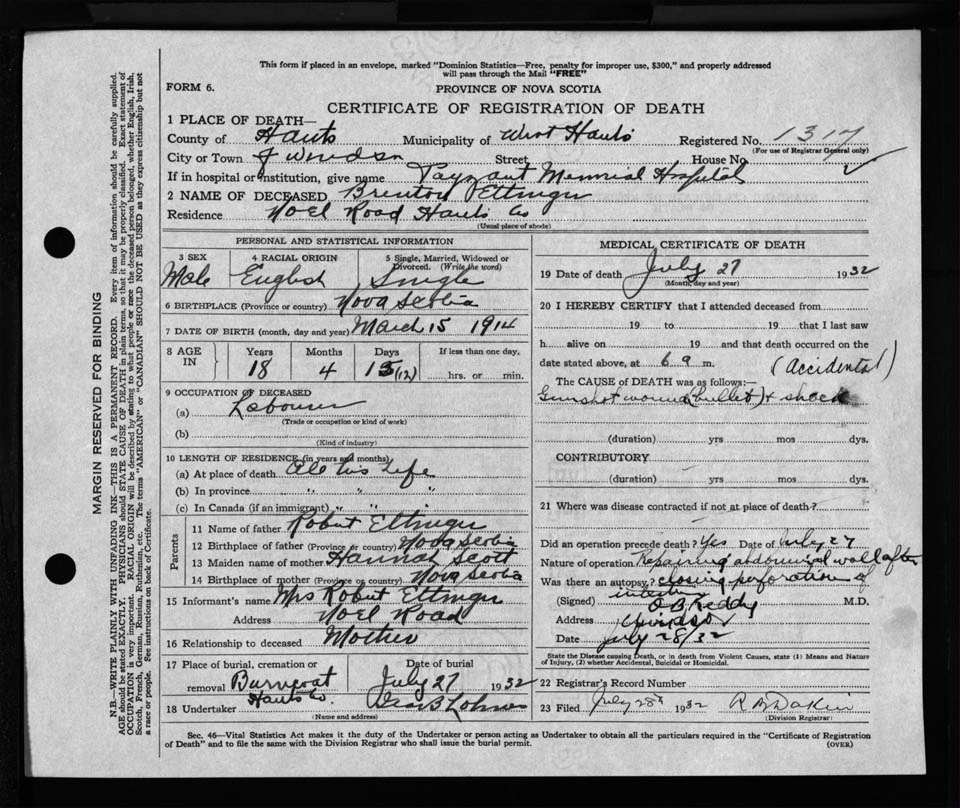 This form if placed in an envelope, marked "Dominion Statistics—Free, penalty for improper use, $300," and properly addressed
will pass through the Mail "FREE"
FORM 6.
PROVINCE OF NOVA SCOTIA
CERTIFICATE OF REGISTRATION OF DEATH
1 PLACE OF DEATH—
County of Hants Municipality of West Hants Registered No. 1317
(For use of Registrar General only)
City or Town of Windsor Street House No.
If in hospital or institution, give name Payzant Memorial Hospital
2 NAME OF DECEASED Brenton Ettinger
Residence Noel Road Hants Co
(Usual place of abode)
PERSONAL AND STATISTICAL INFORMATION
3 SEX 4 RACIAL ORIGIN 5 Single, Married, Widowed or Divorced. (Write the word)
Male English Single
6 BIRTHPLACE (Province or country) Nova Scotia
7 DATE OF BIRTH (month, day and year) March 15 1914
8 AGE IN Years Months Days If less than one day,
18 4 13 (12) hrs. or min.
9 OCCUPATION OF DECEASED
(a) Labourer
(Trade or occupation or kind of work)
(b)
(Kind of industry)
10 LENGTH OF RESIDENCE (in years and months)
(a) At place of death All his Life
(b) In province " " "
(c) In Canada (if an immigrant) " "
Parents
11 Name of father Robert Ettinger
12 Birthplace of father (Province or country) Nova Scotia
13 Maiden name of mother Hannah Scott
14 Birthplace of mother (Province or country) Nova Scotia
15 Informant's name Mrs Robert Ettinger
Address Noel Road
16 Relationship to deceased Mother
17 Place of burial, cremation or removal Burncoat Hants Co. Date of burial July 27 1932
18 Undertaker
(Name and address)
MEDICAL CERTIFICATE OF DEATH
19 Date of death July 27 1932
(Month, day and year)
20 I HEREBY CERTIFY that I attended deceased from
19 to 19 that I last saw
h alive on 19 and that death occurred on the
date stated above, at 6 9 m. (Accidental)
The CAUSE OF DEATH was as follows:—
Gunshot wound (bullet) + shock
(duration) yrs mos dys.
CONTRIBUTORY
(duration) yrs mos dys.
21 Where was disease contracted if not at place of death?
Did an operation precede death? Yes Date of July 27
Nature of operation Repairing abdominal wall after
Was there an autopsy? closing perforation of
intestine
(Signed) O B Keddy M.D.
Address Windsor
Date July 28/32
State the Disease causing Death, or in death from Violent Causes, state (1) Means and Nature
of Injury, (2) whether Accidental, Suicidal or Homicidal.
22 Registrar's Record Number
23 Filed July 28th 1932 R B Dakin
(Division Registrar)
Sec. 46—Vital Statistics Act makes it the duty of the Undertaker or person acting as Undertaker to obtain all the particulars required in the "Certificate of Registration
of Death" and to file the same with the Division Registrar who shall issue the burial permit.
(OVER)
MARGIN RESERVED FOR BINDING
N.B.—WRITE PLAINLY WITH UNFADING INK—THIS IS A PERMANENT RECORD. Every item of information should be carefully supplied.
AGE should be stated EXACTLY. PHYSICIANS should STATE CAUSE OF DEATH in plain terms, so that it may be properly classified. Exact statement of
OCCUPATION is very important. RACIAL ORIGIN will be described by stating to what people or race the deceased person belonged, whether English, Irish,
Scotch, French, German, Russian, Ruthenian, etc. The terms "AMERICAN" or "CANADIAN" SHOULD NOT BE USED as they express citizenship but not
a race or people. See instructions on back of Certificate.